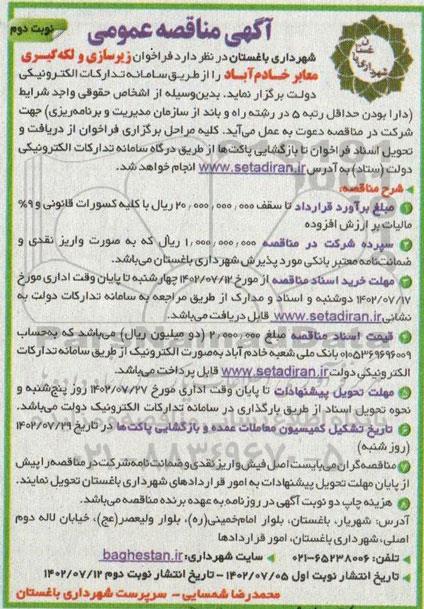 نوبت دوم
آگهی مناقصه عمومی
شهرداری باغستان در نظر دارد فراخوان زیرسازی و لکه گیری
معابر خادم آباد را از طریق سامانه تدارکات الکترونیکی
دولت برگزار نماید. بدین‌وسیله از اشخاص حقوقی واجد شرایط
(دارا بودن حداقل رتبه ۵ در رشته راه و باند از سازمان مدیریت و برنامه‌ریزی) جهت
شرکت در مناقصه دعوت به عمل می‌آید. کلیه مراحل برگزاری فراخوان از دریافت و
تحویل اسناد فراخوان تا بازگشایی پاکت‌ها از طریق درگاه سامانه تدارکات الکترونیکی
دولت (ستاد) به آدرس www.setadiran.ir انجام خواهد شد.
شرح مناقصه:
۱ مبلغ برآورد قرارداد تا سقف ۲۰,۰۰۰,۰۰۰,۰۰۰ ریال با کلیه کسورات قانونی و ۹%
مالیات بر ارزش افزوده
۲ سپرده شرکت در مناقصه ۱,۰۰۰,۰۰۰,۰۰۰ ریال که به صورت واریز نقدی و
ضمانت‌نامه معتبر بانکی مورد پذیرش شهرداری باغستان می‌باشد.
۳ مهلت خرید اسناد مناقصه از مورخ ۱۴۰۲/۰۷/۱۲ چهارشنبه تا پایان وقت اداری مورخ
۱۴۰۲/۰۷/۱۷ دوشنبه و اسناد و مدارک از طریق مراجعه به سامانه تدارکات دولت به
نشانی www.setadiran.ir قابل دریافت می‌باشد.
۴ قیمت اسناد مناقصه مبلغ ۲,۰۰۰,۰۰۰ (دو میلیون ریال) می‌باشد که به‌حساب
۰۱۰۵۳۶۹۶۹۶۰۰۹ بانک ملی شعبه خادم آباد به‌صورت الکترونیک از طریق سامانه تدارکات
الکترونیکی دولت www.setadiran.ir قابل پرداخت می‌باشد.
۵ مهلت تحویل پیشنهادات تا پایان وقت اداری مورخ ۱۴۰۲/۰۷/۲۷ روز پنج‌شنبه و
نحوه تحویل اسناد از طریق بارگذاری در سامانه تدارکات الکترونیک دولت می‌باشد.
۶ تاریخ تشکیل کمیسیون معاملات عمده و بازگشایی پاکت‌ها در تاریخ ۱۴۰۲/۰۷/۲۹
(روز شنبه)
۷ مناقصه‌گران می‌بایست اصل فیش واریز نقدی و ضمانت‌نامه شرکت در مناقصه را پیش
از پایان مهلت تحویل پیشنهادات به امور قراردادهای شهرداری باغستان تحویل نمایند.
۸ هزینه چاپ دو نوبت آگهی در روزنامه به عهده برنده مناقصه می‌باشد.
آدرس: شهریار، باغستان، بلوار امام‌خمینی(ره)، بلوار ولیعصر(عج)، خیابان لاله دوم
اصلی، شهرداری باغستان، امور قراردادها
تلفن: ۶۵۲۳۸۰۰۶-۰۲۱ سایت شهرداری: baghestan.ir
تاریخ انتشار نوبت اول ۱۴۰۲/۰۷/۰۵ - تاریخ انتشار نوبت دوم ۱۴۰۲/۰۷/۱۲
محمدرضا شمسایی - سرپرست شهرداری باغستان